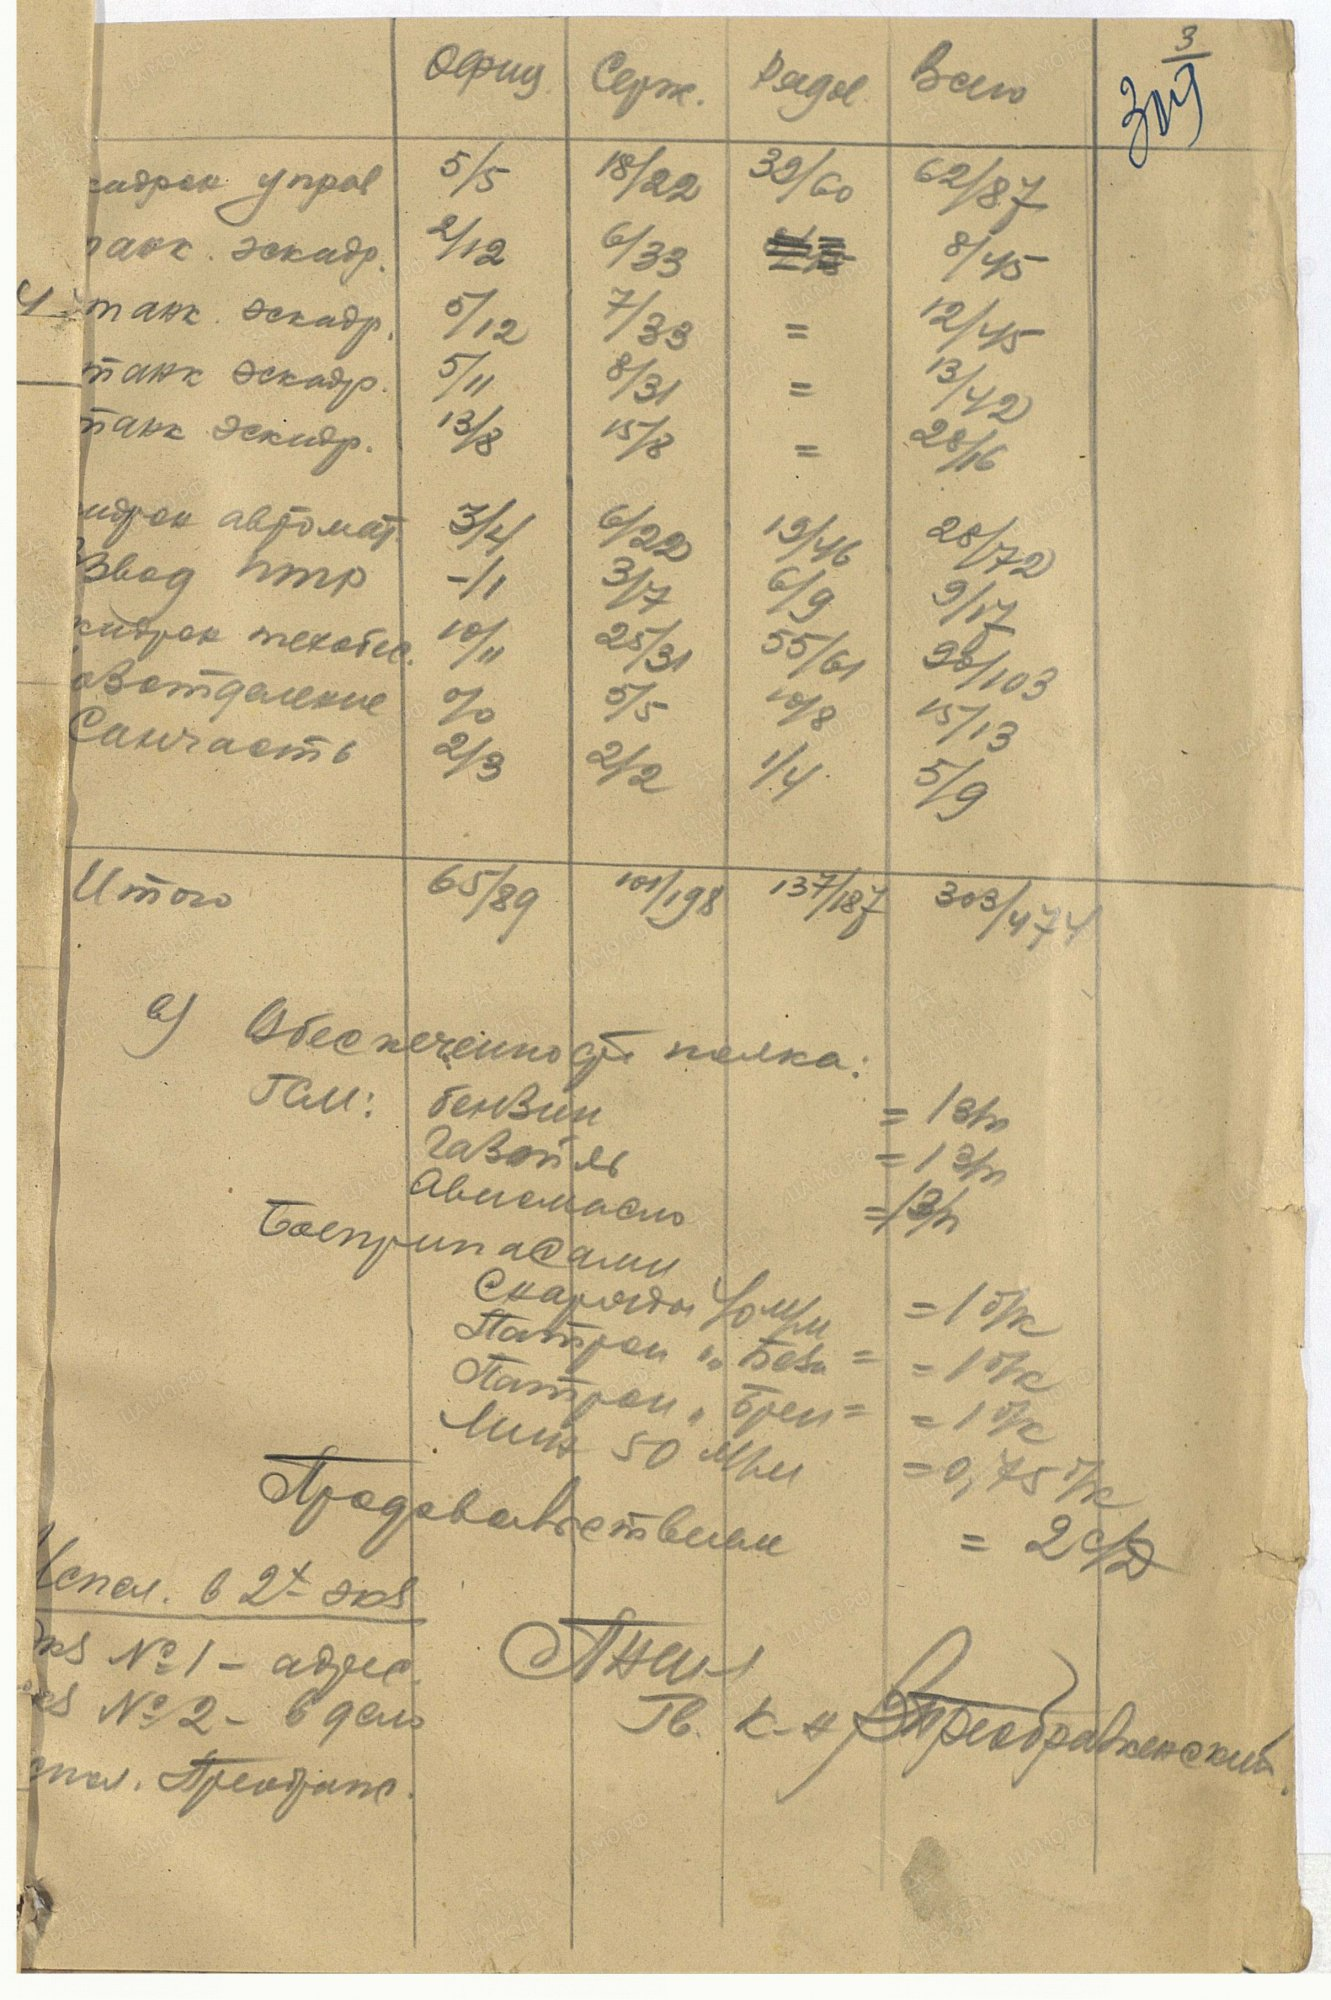 3
309
Офиц. Серж. Рядов. Всего
кадрон управ 5/5 18/22 39/60 62/87
танк. эскадр. 2/12 6/33 8/45
танк. эскадр. 5/12 7/33 = 12/45
танк эскадр. 5/11 8/31 = 13/42
танк эскадр. 13/8 15/8 = 28/16
кадрон автомат. 3/4 6/22 19/46 28/72
Взвод ПТР -/1 3/7 6/9 9/17
кадрон техобес. 10/11 25/31 55/61 90/103
озотделение 0/0 5/5 10/8 15/13
Санчасть 2/3 2/2 1/4 5/9
Итого 65/89 101/198 137/187 303/474
в) Обеспеченность полка:
ГСМ: бензин = 1 з/п
газойль = 1 з/п
Авиамасло = 1 з/п
Боеприпасами
Снаряды 40 м/м = 1 б/к
Патрон „Беза" = 1 б/к
Патрон „Брен" = 1 б/к
Мин 50 м/м = 0,75 б/к
Продовольствием = 2 с/д
Испол. в 2х экз
экз № 1 – адрес.
экз № 2 – в дело
Гв. к-н Преображенский
спол. Преображ.